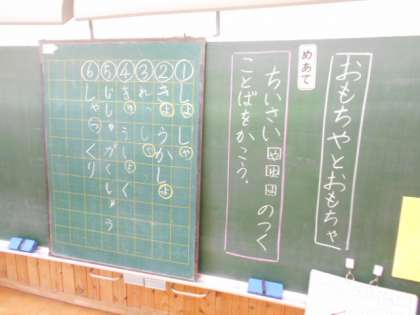 おもちやとおもちゃ
めあて
ちいさい ゃ ゅ ょ のつく
ことばをかこう。
① しょしゃ
② きょうかしょ
③ れっしゃ
④ きゅうしょく
⑤ じしゅがくしゅう
⑥ しゃっくり